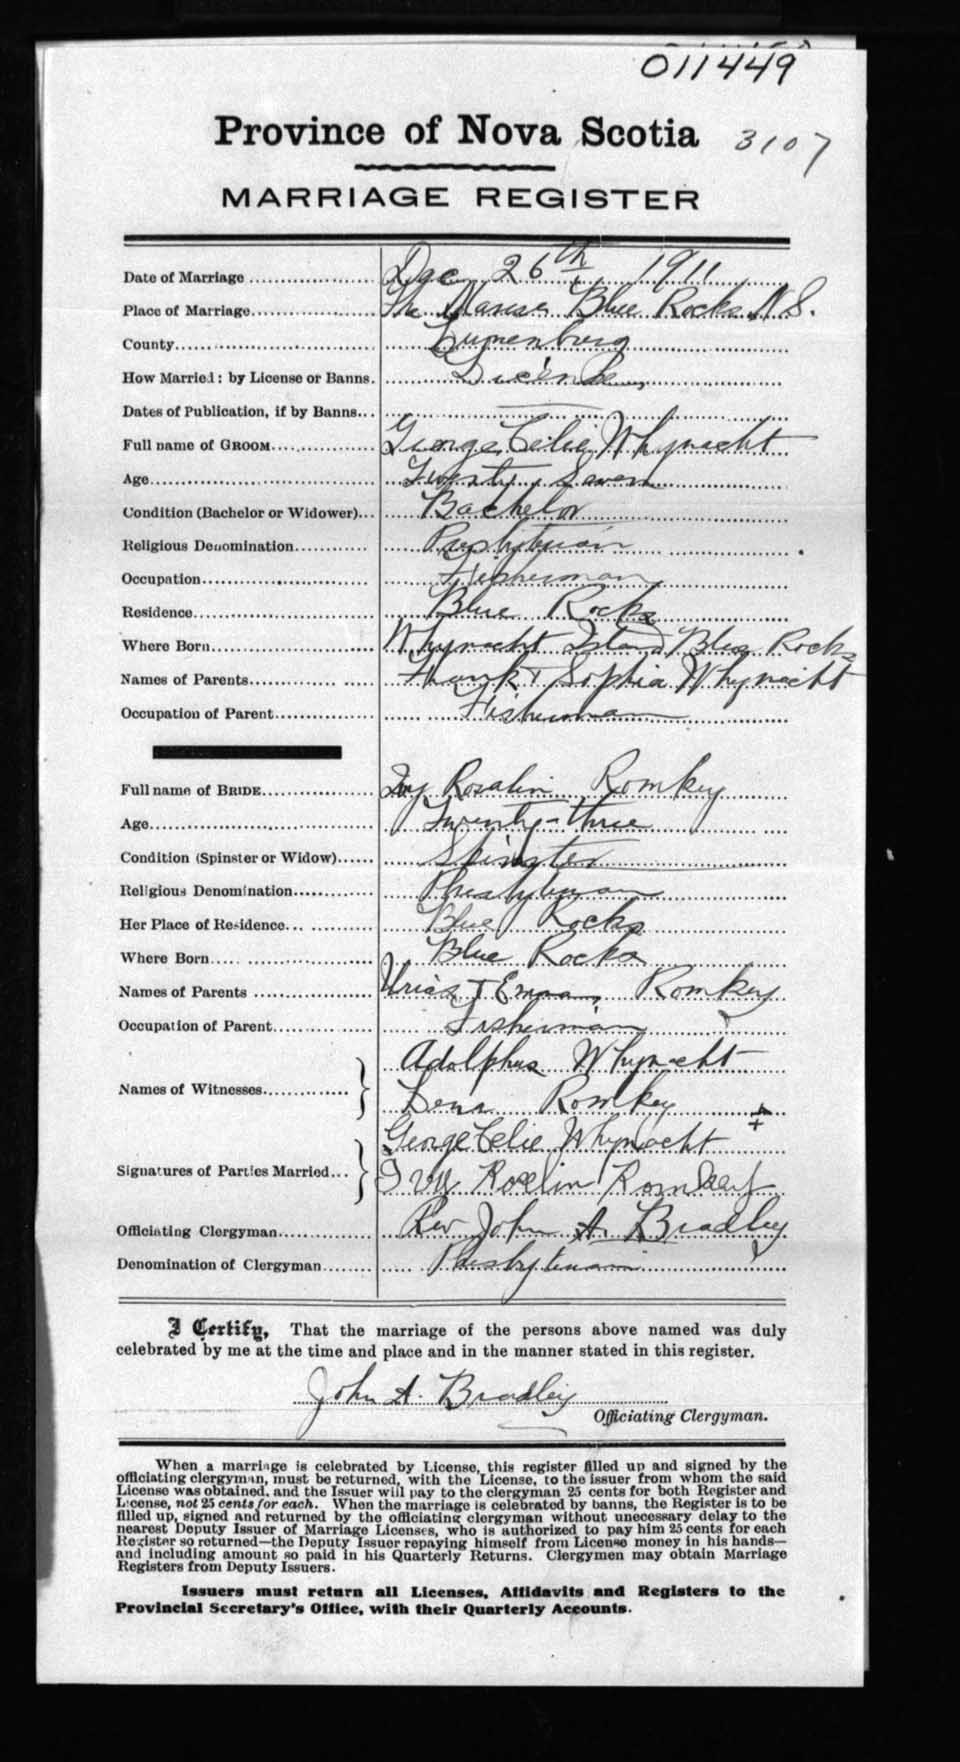 011449
Province of Nova Scotia 3107
MARRIAGE REGISTER
Date of Marriage Dec 26th 1911
Place of Marriage The Manse Blue Rocks N.S.
County Lunenburg
How Married: by License or Banns. License
Dates of Publication, if by Banns
Full name of GROOM George Celie Whynacht
Age Twenty Seven
Condition (Bachelor or Widower) Bachelor
Religious Denomination Presbyterian
Occupation Fisherman
Residence Blue Rocks
Where Born Whynacht Island Blue Rocks
Names of Parents Frank + Sophia Whynacht
Occupation of Parent Fisherman
Full name of BRIDE Ivy Rosalin Romkey
Age Twenty-three
Condition (Spinster or Widow) Spinster
Religious Denomination Presbyterian
Her Place of Residence Blue Rocks
Where Born Blue Rocks
Names of Parents Urias + Emma Romkey
Occupation of Parent Fisherman
Adolphus Whynacht
Names of Witnesses
Lena Romkey
George Celie Whynacht +
Signatures of Parties Married
Ivy Roselin Romkey
Officiating Clergyman Rev John A. Bradley
Denomination of Clergyman Presbyterian
I Certify, That the marriage of the persons above named was duly
celebrated by me at the time and place and in the manner stated in this register.
John A. Bradley
Officiating Clergyman.
When a marriage is celebrated by License, this register filled up and signed by the
officiating clergyman, must be returned, with the License, to the issuer from whom the said
License was obtained, and the Issuer will pay to the clergyman 25 cents for both Register and
License, not 25 cents for each. When the marriage is celebrated by banns, the Register is to be
filled up, signed and returned by the officiating clergyman without unnecessary delay to the
nearest Deputy Issuer of Marriage Licenses, who is authorized to pay him 25 cents for each
Register so returned—the Deputy Issuer repaying himself from License money in his hands—
and including amount so paid in his Quarterly Returns. Clergymen may obtain Marriage
Registers from Deputy Issuers.
Issuers must return all Licenses, Affidavits and Registers to the
Provincial Secretary's Office, with their Quarterly Accounts.